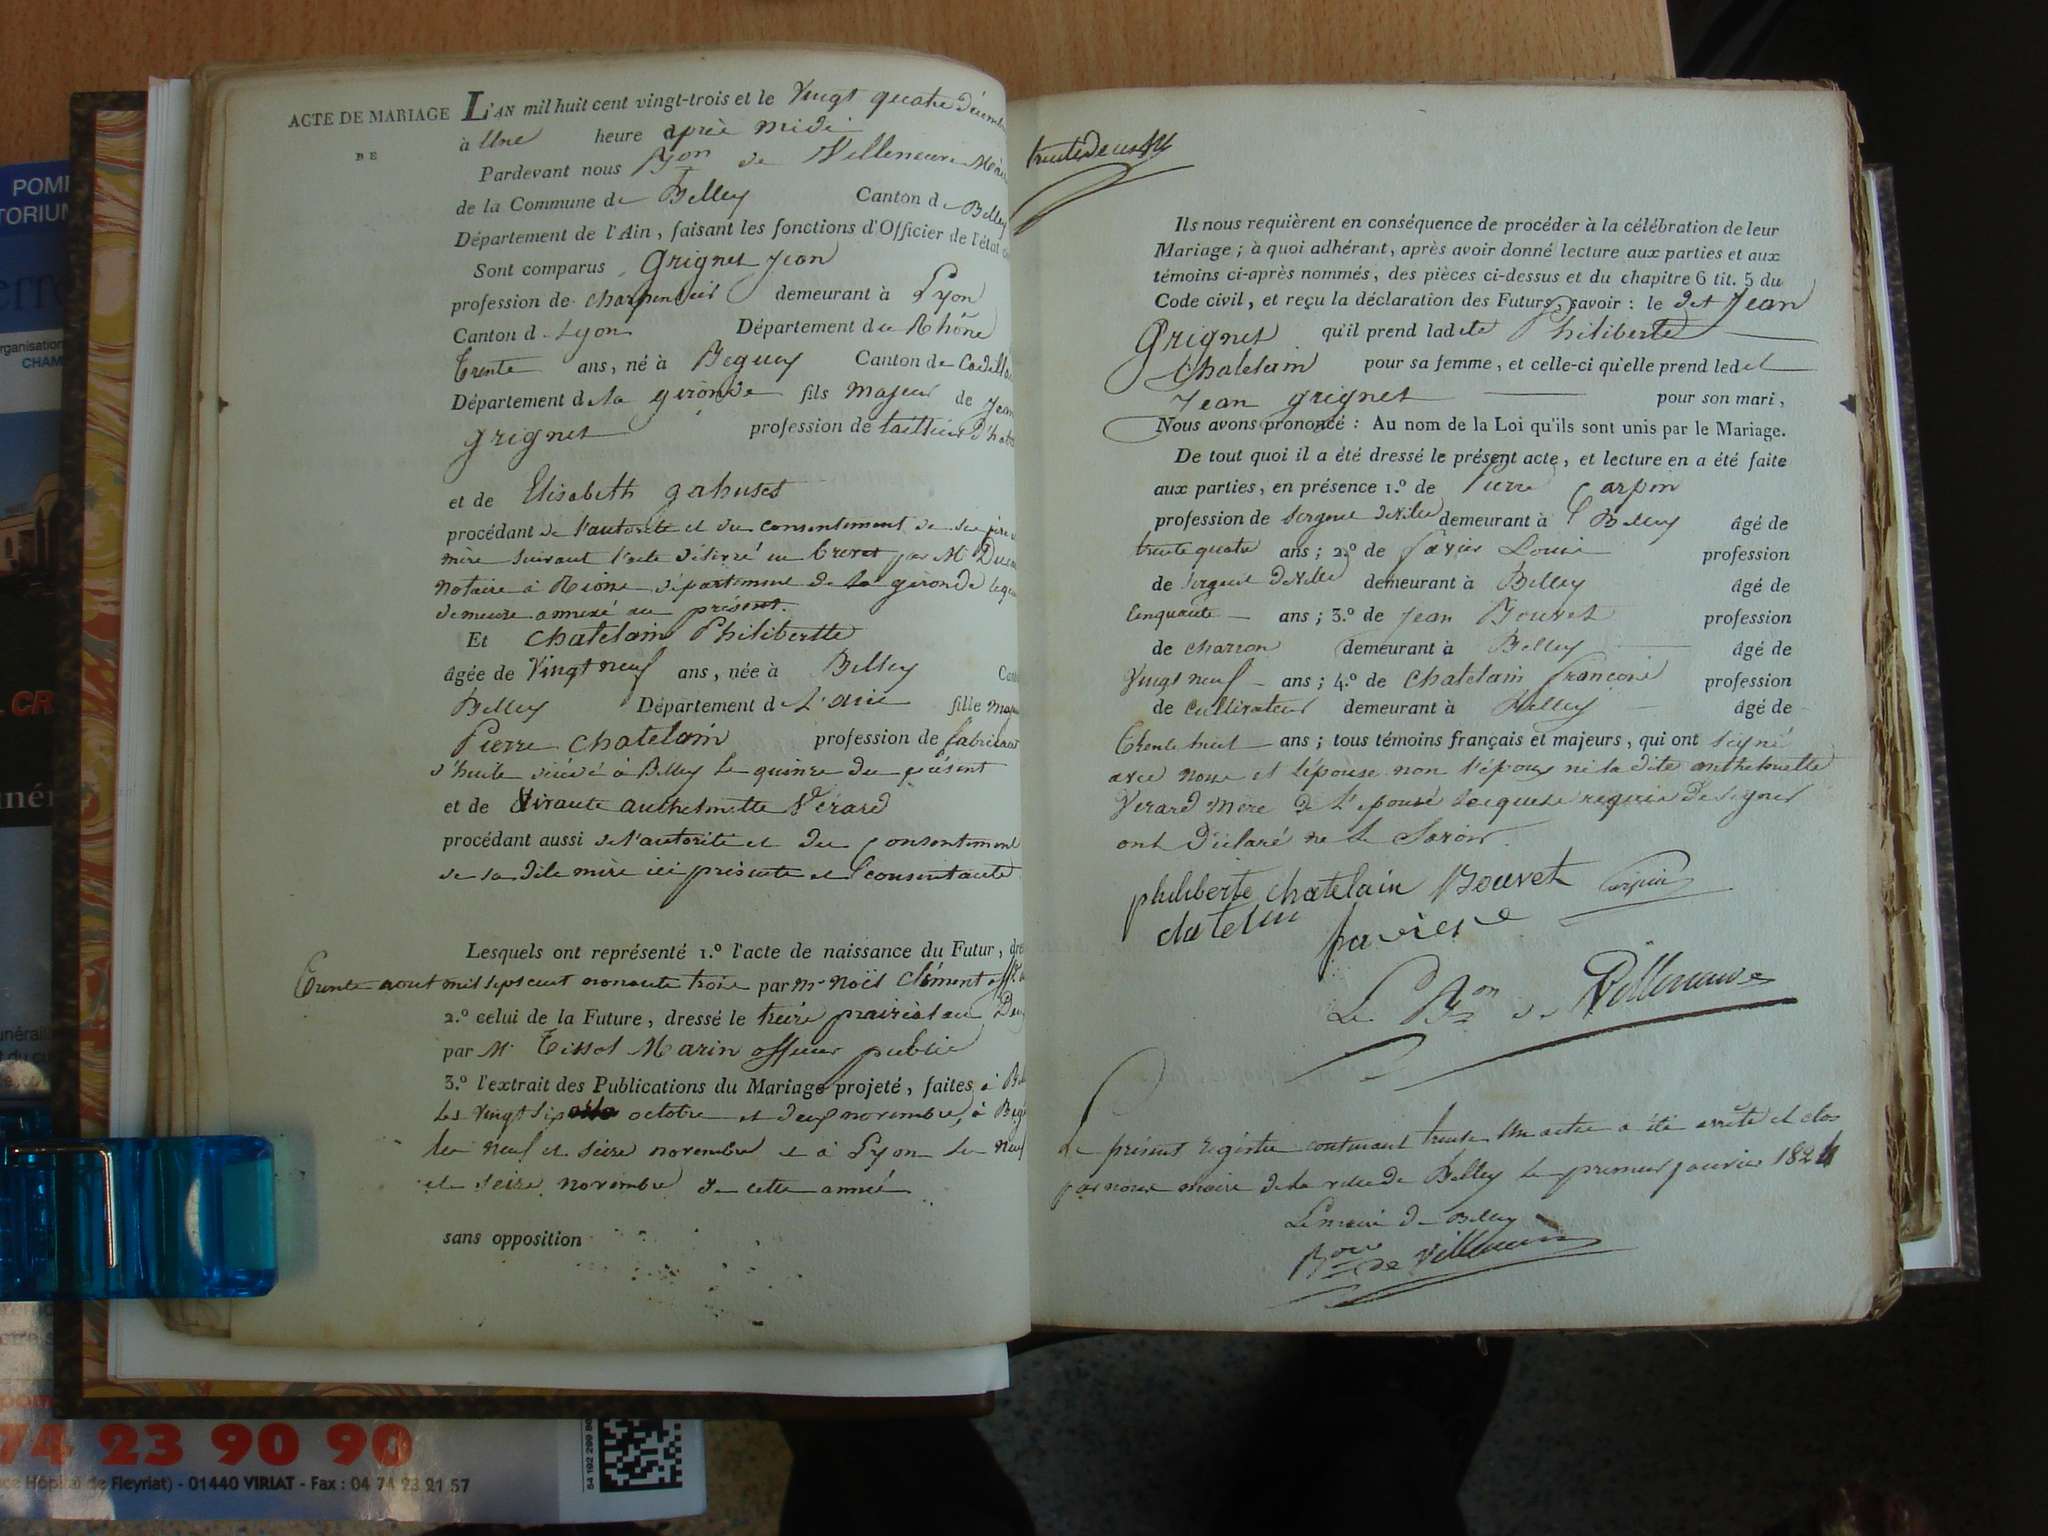 ACTE DE MARIAGE L'AN mil huit cent vingt-trois et le Vingt quatre Décemb
DE
à Une heure après midi
Pardevant nous Bon de Villeneuve Mai
de la Commune de Belley Canton de Belley
Département de l'Ain, faisant les fonctions d'Officier de l'état
Sont comparus Grignet Jean
profession de charpentier demeurant à Lyon
Canton de Lyon Département du Rhône
trente ans, né à Beguey Canton de Cadilla
Département de la gironde fils majeur de Jean
grignet profession de tailleur d'hab
et de Elisabeth
procédant de l'autorité et du consentement de ses père
mère suivant l'acte délivré en brevet par Mr
Notaire à Rions département de la gironde
demeure annexé au présent.
Et Chatelain Philibertte
âgée de Vingt neuf ans, née à Belley
Belley Département de L'ain fille
Pierre Chatelain profession de fabricant
d'huile décédé à Belley le quinze du présent
et de Vivante anthelmette Vérard
procédant aussi de l'autorité et du consentement
de sa dite mère ici présente et consentante
Lesquels ont représenté 1.º l'acte de naissance du Futur,
trente aout mil sept cent nonante trois par Mr Noël Clément
2.º celui de la Future, dressé le treize prairial an Deux
par Mr Tissot Marin officier public
3.º l'extrait des Publications du Mariage projeté, faites à
les vingt six octobre et deux novembre, à
les neuf et seize novembre et à Lyon les neuf
et seize novembre de cette année
sans opposition
trente deux
Ils nous requièrent en conséquence de procéder à la célébration de leur
Mariage ; à quoi adhérant, après avoir donné lecture aux parties et aux
témoins ci-après nommés, des pièces ci-dessus et du chapitre 6 tit. 5 du
Code civil, et reçu la déclaration des Futurs, savoir : le dit Jean
Grignet qu'il prend ladite Philiberte
Chatelain pour sa femme, et celle-ci qu'elle prend ledit
Jean grignet pour son mari,
Nous avons prononcé : Au nom de la Loi qu'ils sont unis par le Mariage.
De tout quoi il a été dressé le présent acte, et lecture en a été faite
aux parties, en présence 1.º de Pierre Carpin
profession de sergent deville demeurant à Belley âgé de
trente quatre ans ; 2.º de favier Louis profession
de sergent deville demeurant à Belley âgé de
Cinquante ans ; 3.º de Jean Bouvet profession
de charron demeurant à Belley âgé de
Vingt neuf ans ; 4.º de Chatelain françois profession
de cultivateur demeurant à Belley âgé de
trente huit ans ; tous témoins français et majeurs, qui ont signé
avec nous et l'épouse non l'époux ni la dite anthelmette
Verard mère de l'épouse lesquels requis de signer
ont déclaré ne le savoir.
philiberte chatelain Bouvet Carpin
chatelin favier
Le Bon de Villeneuve
Le présent régistre contenant trente un actes a été arrêté et clos
par nous maire de la ville de Belley le premier janvier 1824
Le maire de Belley
Bon de Villeneuve
POMP
TORIUM
rganisation
CHAM
CR
74 23 90 90
ce Hôpital de Fleyriat) - 01440 VIRIAT - Fax : 04 74 23 21 57